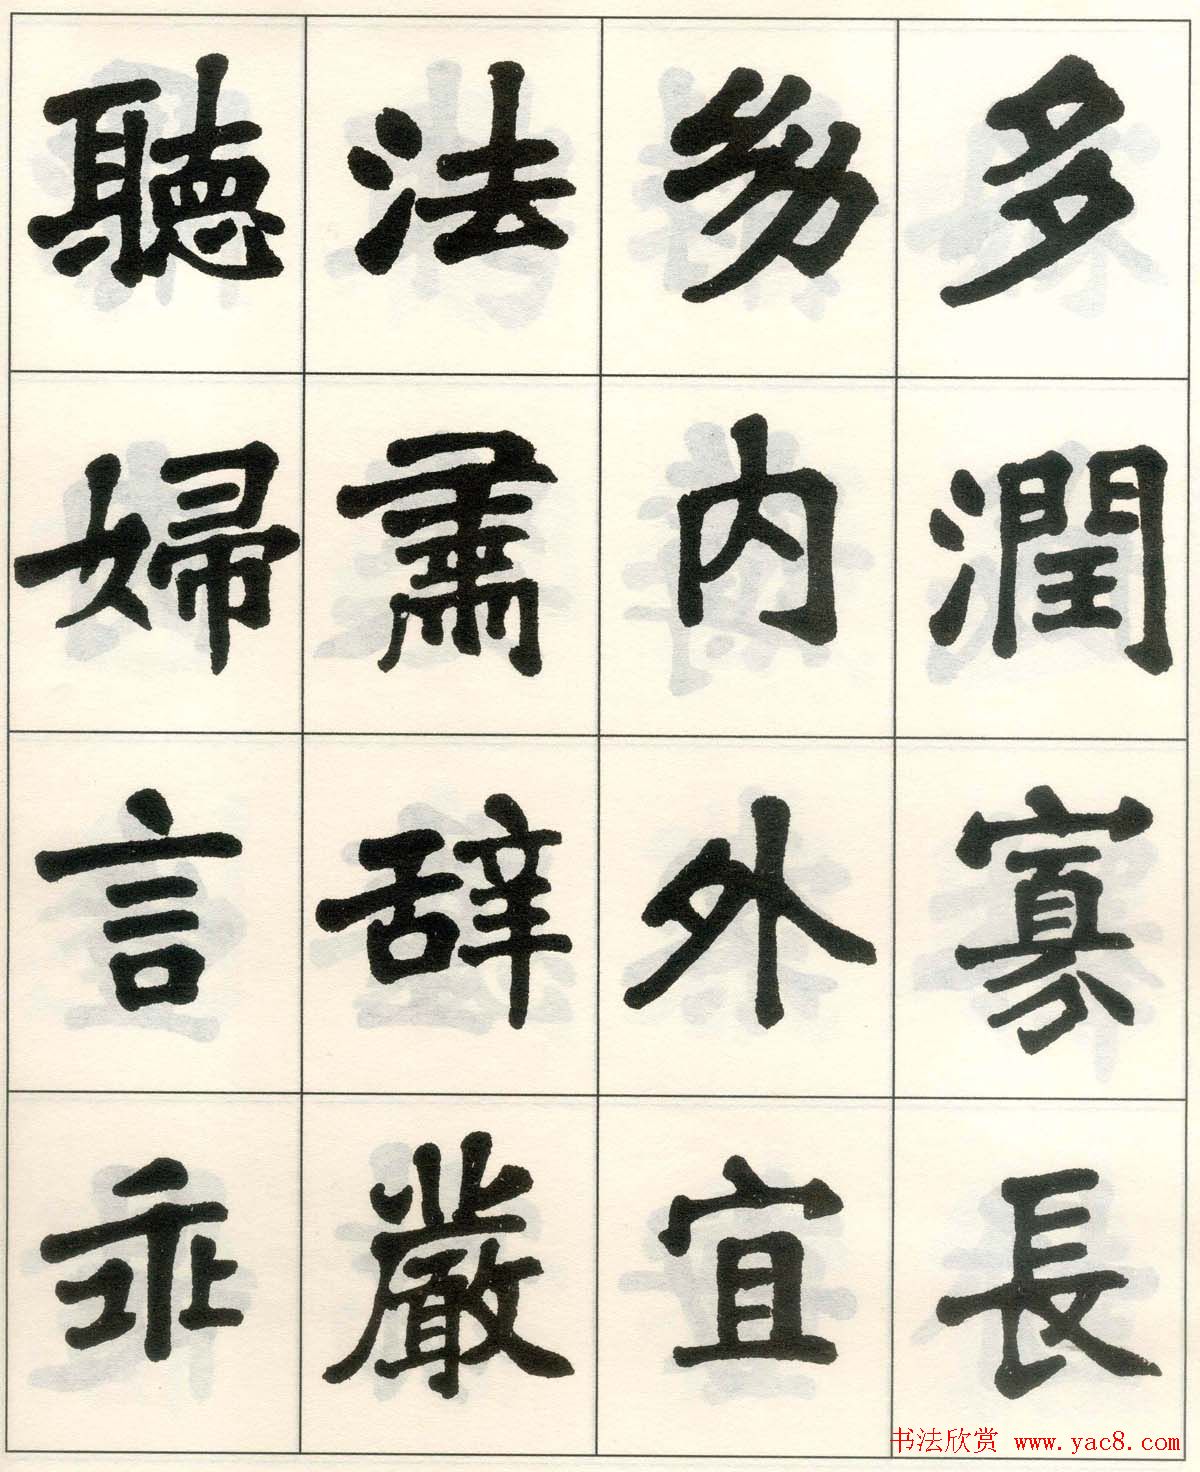 多潤寡長
幼内外宜
法肅辭嚴
聽婦言乖
书法欣赏 www.yac8.com